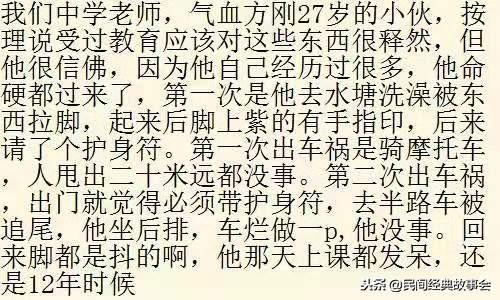 我们中学老师，气血方刚27岁的小伙，按
理说受过教育应该对这些东西很释然，但
他很信佛，因为他自己经历过很多，他命
硬都过来了，第一次是他去水塘洗澡被东
西拉脚，起来后脚上紫的有手指印，后来
请了个护身符。第一次出车祸是骑摩托车
，人甩出二十米远都没事。第二次出车祸
，出门就觉得必须带护身符，去半路车被
追尾，他坐后排，车烂做一p,他没事。回
来脚都是抖的啊，他那天上课都发呆，还
是12年时候
头条 @民间经典故事会